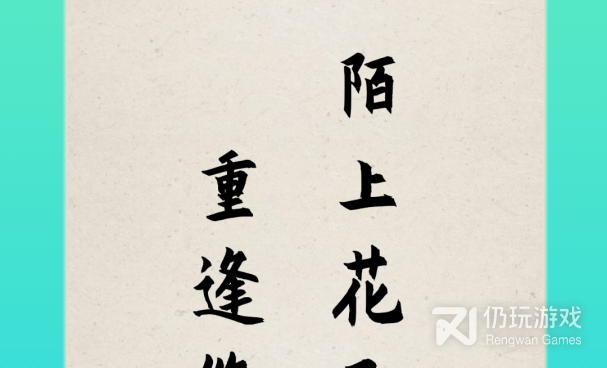 陌上花
重逢
仍玩游戏
Rengwan Games